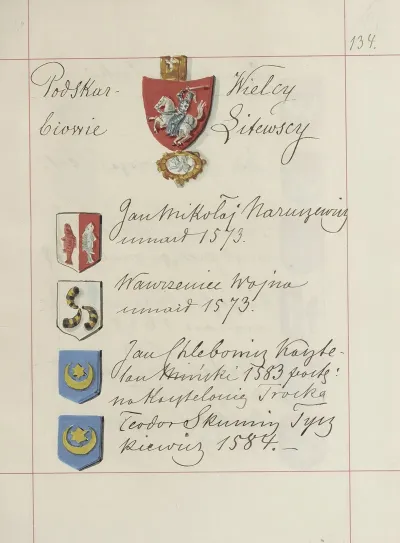 134.
Podskar- Wielcy
biowie Litewscy
Jan Mikołaj Naruszewicz
umarł 1573.
Wawrzeniec Wojna
umarł 1573.
Jan Chlebowicz Kaszte-
lan Miński 1583 postą:
na Kasztelanię Trocką
Teodor Skumin Tysz
kiewicz 1584. —